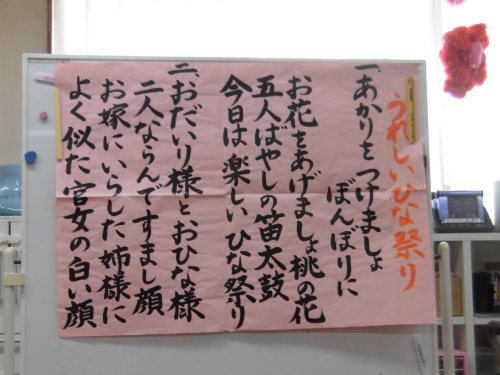 うれしいひな祭り
一、あかりを つけましょ
ぼんぼりに
お花をあげましょ桃の花
五人ばやしの笛太鼓
今日は楽しい ひな祭り
二、おだいり様とおひな様
二人ならんですまし顔
お嫁にいらした姉様に
よく似た官女の白い顔